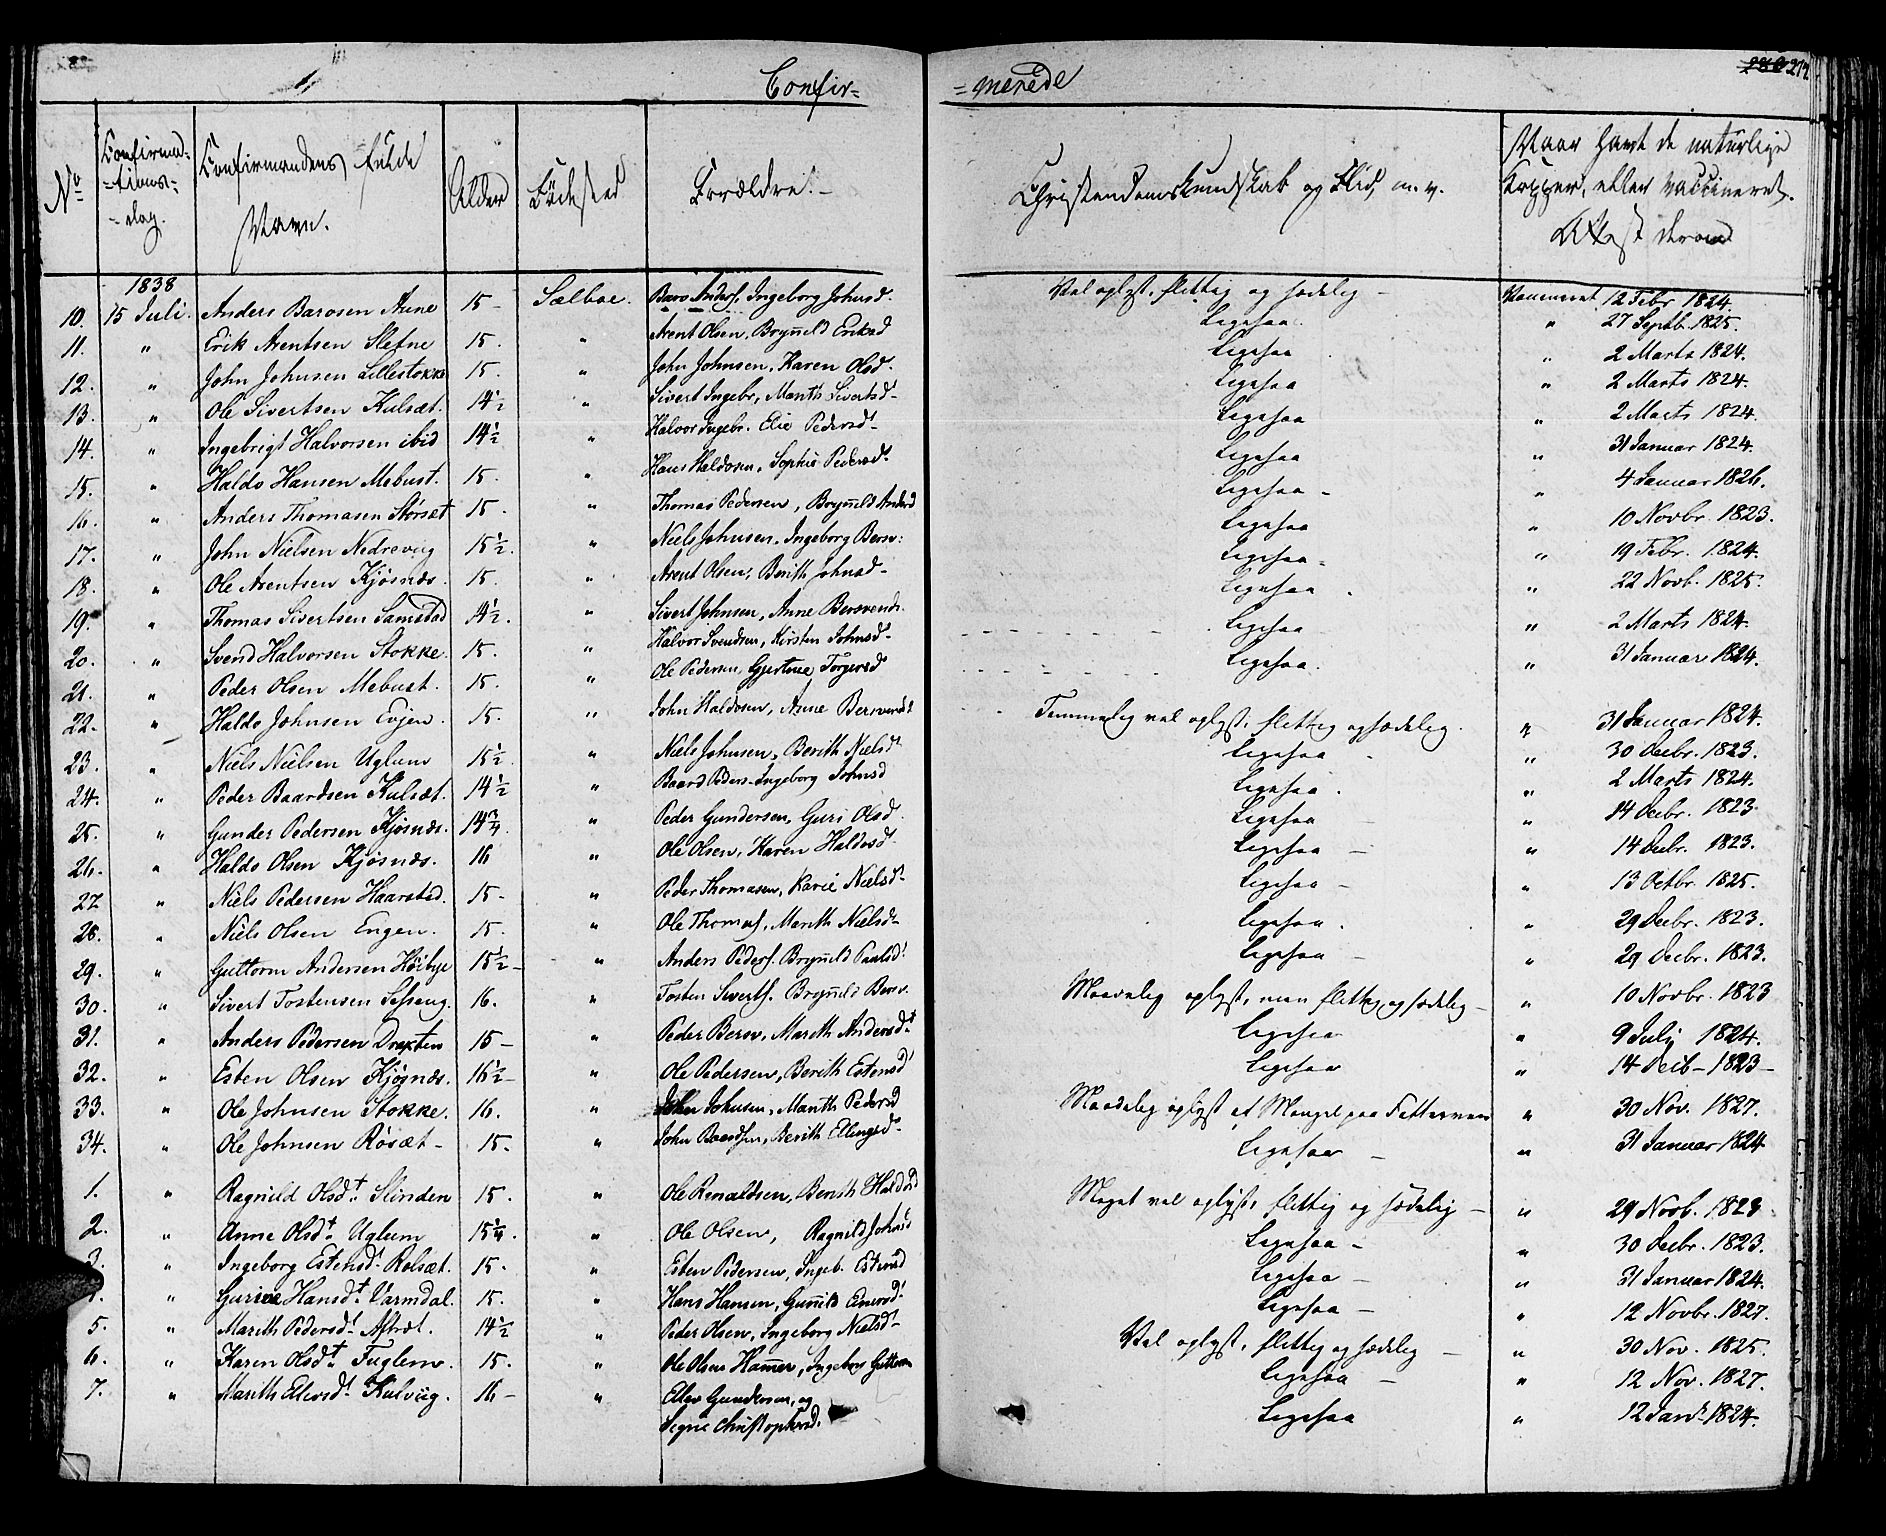 Confir=
=merede
274
No
Confirma=
=tions=
=dag.
Confirmandens fulde
Navn.
Alder
Födested
Forældre.
Christendomskundskab og Flid, m. v.
Naar havt de naturlige
Kopper, eller vaccineret.
Attest derom
1838
10. 15 Juli. Anders Barosen Aune 15 - Sælboe. Baro Anders. Ingeborg Johnsd. Vel oplyst, flittig og sædelig - Vaccineret 12 Febr 1824.
11. " Erik Arentsen Sletne 15. " Arent Olsen, Bryn̅ild Eriksd Ligesaa. " 27 Septb. 1825.
12. " John Johnsen Lillestokke 15. " John Johnsen, Karen Olsd. Ligesaa " 2 Marts 1824.
13. " Ole Sivertsen Kulsæt. 14 1/2 " Sivert Ingebr, Marith Sivertsd- Ligesaa " 2 Marts 1824.
14. " Ingebrigt Halvorsen ibid 14 1/2 " Halvor Ingebr. Elie Pedersd- Ligesaa " 2 Marts 1824.
15. " Haldo Hansen Mebust. 15. " Hans Haldosen, Sophie Pedersd. Ligesaa " 31 Januar 1824.
16. " Anders Thomasen Storsæt 15. " Thomas Pedersen, Bryn̅ild Andersd Ligesaa - " 4 Januar 1826.
17. " John Nielsen Nedrevug 15 1/2. " Niels Johnsen, Ingeborg Bersv: Ligesaa " 10 Novbr. 1823.
18. " Ole Arentsen Kjösnæs. 15. " Arent Olsen, Berith Johnsd- Ligesaa - " 19 Febr. 1824.
19. " Thomas Sivertsen Samstad 14 1/2. " Sivert Johnsen, Anne Bersvends. Ligesaa " 22 Novb. 1825.
20. " Svend Halvorsen Stokke. 15. " Halvor Svendsen, Kirsten Johnsd- Ligesaa " 2 Marts 1824.
21. " Peder Olsen Mebust. 15. " Ole Pedersen, Gjertrue Torgersd Ligesaa. " 31 Januar 1824.
22. " Haldo Johnsen Evjen. 15. " John Haldosen, Anne Bersvendsd Temmelig vel oplyst, flittig og sædelig. " 31 Januar 1824.
23. " Niels Nielsen Uglum 15 1/2. " Niels Johnsen, Berith Nielsd Ligesaa " 30 Decbr. 1823.
24. " Peder Baardsen Kulsæt. 14 1/2 " Baard Peders- Ingeborg Johnsd Ligesaa. " 2 Marts 1824.
25. " Gunder Pedersen Kjösnæs. 14 3/4. " Peder Gundersen, Guri Olsd. Ligesaa - " 14 Decbr. 1823.
26. " Haldo Olsen Kjösnæs. 16 " Ole Olsen, Karen Haldosd. Ligesaa - " 14 Decbr. 1823.
27 " Niels Pedersen Haarstad. 15- " Peder Thomasen, Karie Nielsd- Ligesaa - " 13 Octbr. 1825.
28. " Niels Olsen Engen. 15. " Ole Thomas. Marith Nielsd- Ligesaa. " 29 Decbr. 1823.
29. " Guttorm Andersen Höibye 15 1/2- " Anders Peders. Bryn̅ild Paulsd. Ligesaa - " 29 Decbr. 1823.
30. " Sivert Tostensen Sesseng. 16. " Tosten Sivert. Bryn̅ild Bersv. Maadelig oplyst, men flittig og sædelig- " 10 Novbr. 1823
31. " Anders Pedersen Draxten 15- " Peder Bersv, Marith Andersdt Ligesaa " 9 July 1824.
32. " Esten Olsen Kjösnæs. 16 1/2- " Ole Pedersen, Berith Estensd Ligesaa " 14 Decb- 1823-
33. " Ole Johnsen Stokke. 16. " John Johnsen, Marith Pedersd Maadelig oplyst af Mangel paa Fatteevne " 30 Nov. 1827.
34. " Ole Johnsen Rösæt- 15. " John Baardsen, Berith Ellingsd- Ligesaa - " 31 Januar 1824
1. " Ragnild Olsdt. Slinden 15. " Ole Renaldsen, Berith Haldosd Meget vel oplyst, flittig og sædelig - " 29 Novb. 1823
2. " Anne Olsdt. Uglum 15 1/4. " Ole Olsen, Ragnild Johnsd Ligesaa - " 30 Decbr. 1823.
3. " Ingeborg Estensd. Rolsæt. 15. " Esten Pedersen, Ingeb. Estensd Ligesaa - " 31 Januar 1824.
" Gurine Hansdt. Varmdal. 15. " Hans Hansen, Gun̅ild Einersd. Ligesaa - " 12 Novbr. 1827.
5. " Marith Pedersd. Aftræt. 14 1/2 " Peder Olsen, Ingeborg Nielsd- Vel oplyst, flittig og sædelig - " 30 Nov. 1825.
6. " Karen Olsdt. Fuglem. 15. " Ole Olsen Ham̅er, Ingeborg Guttorm Ligesaa - " 12 Nov. 1827.
7. " Marith Ellevsd. Kulvüg. 16- " Ellev Gundersen, og Ligesaa " 12 Jan. 1824.
Segne Christophersd.